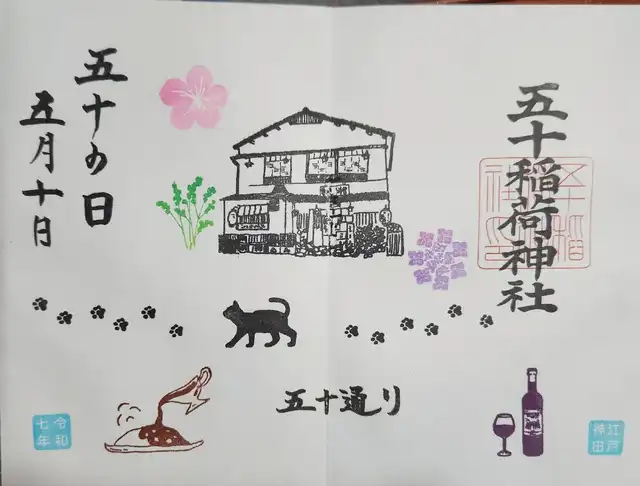 五十稲荷神社
五十の日
五月十日
五十通り
江戸
神田
令和
七年